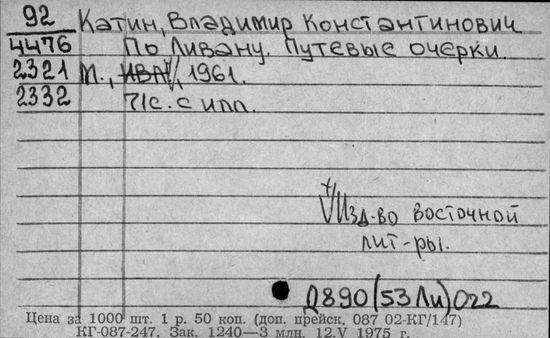 92 Катин, Владимир Константинович
4476 По Ливану. Путевые очерки.
2321 М., ИВЛ, 1961.
2332 71с. с илл.
Изд-во восточной
лит-ры.
Д890(53Ли)022
Цена за 1000 шт. 1 р. 50 коп. (доп. прейск. 087 02-КГ/147)
КГ-087-247. Зак. 1240—3 млн. 12.V 1975 г.